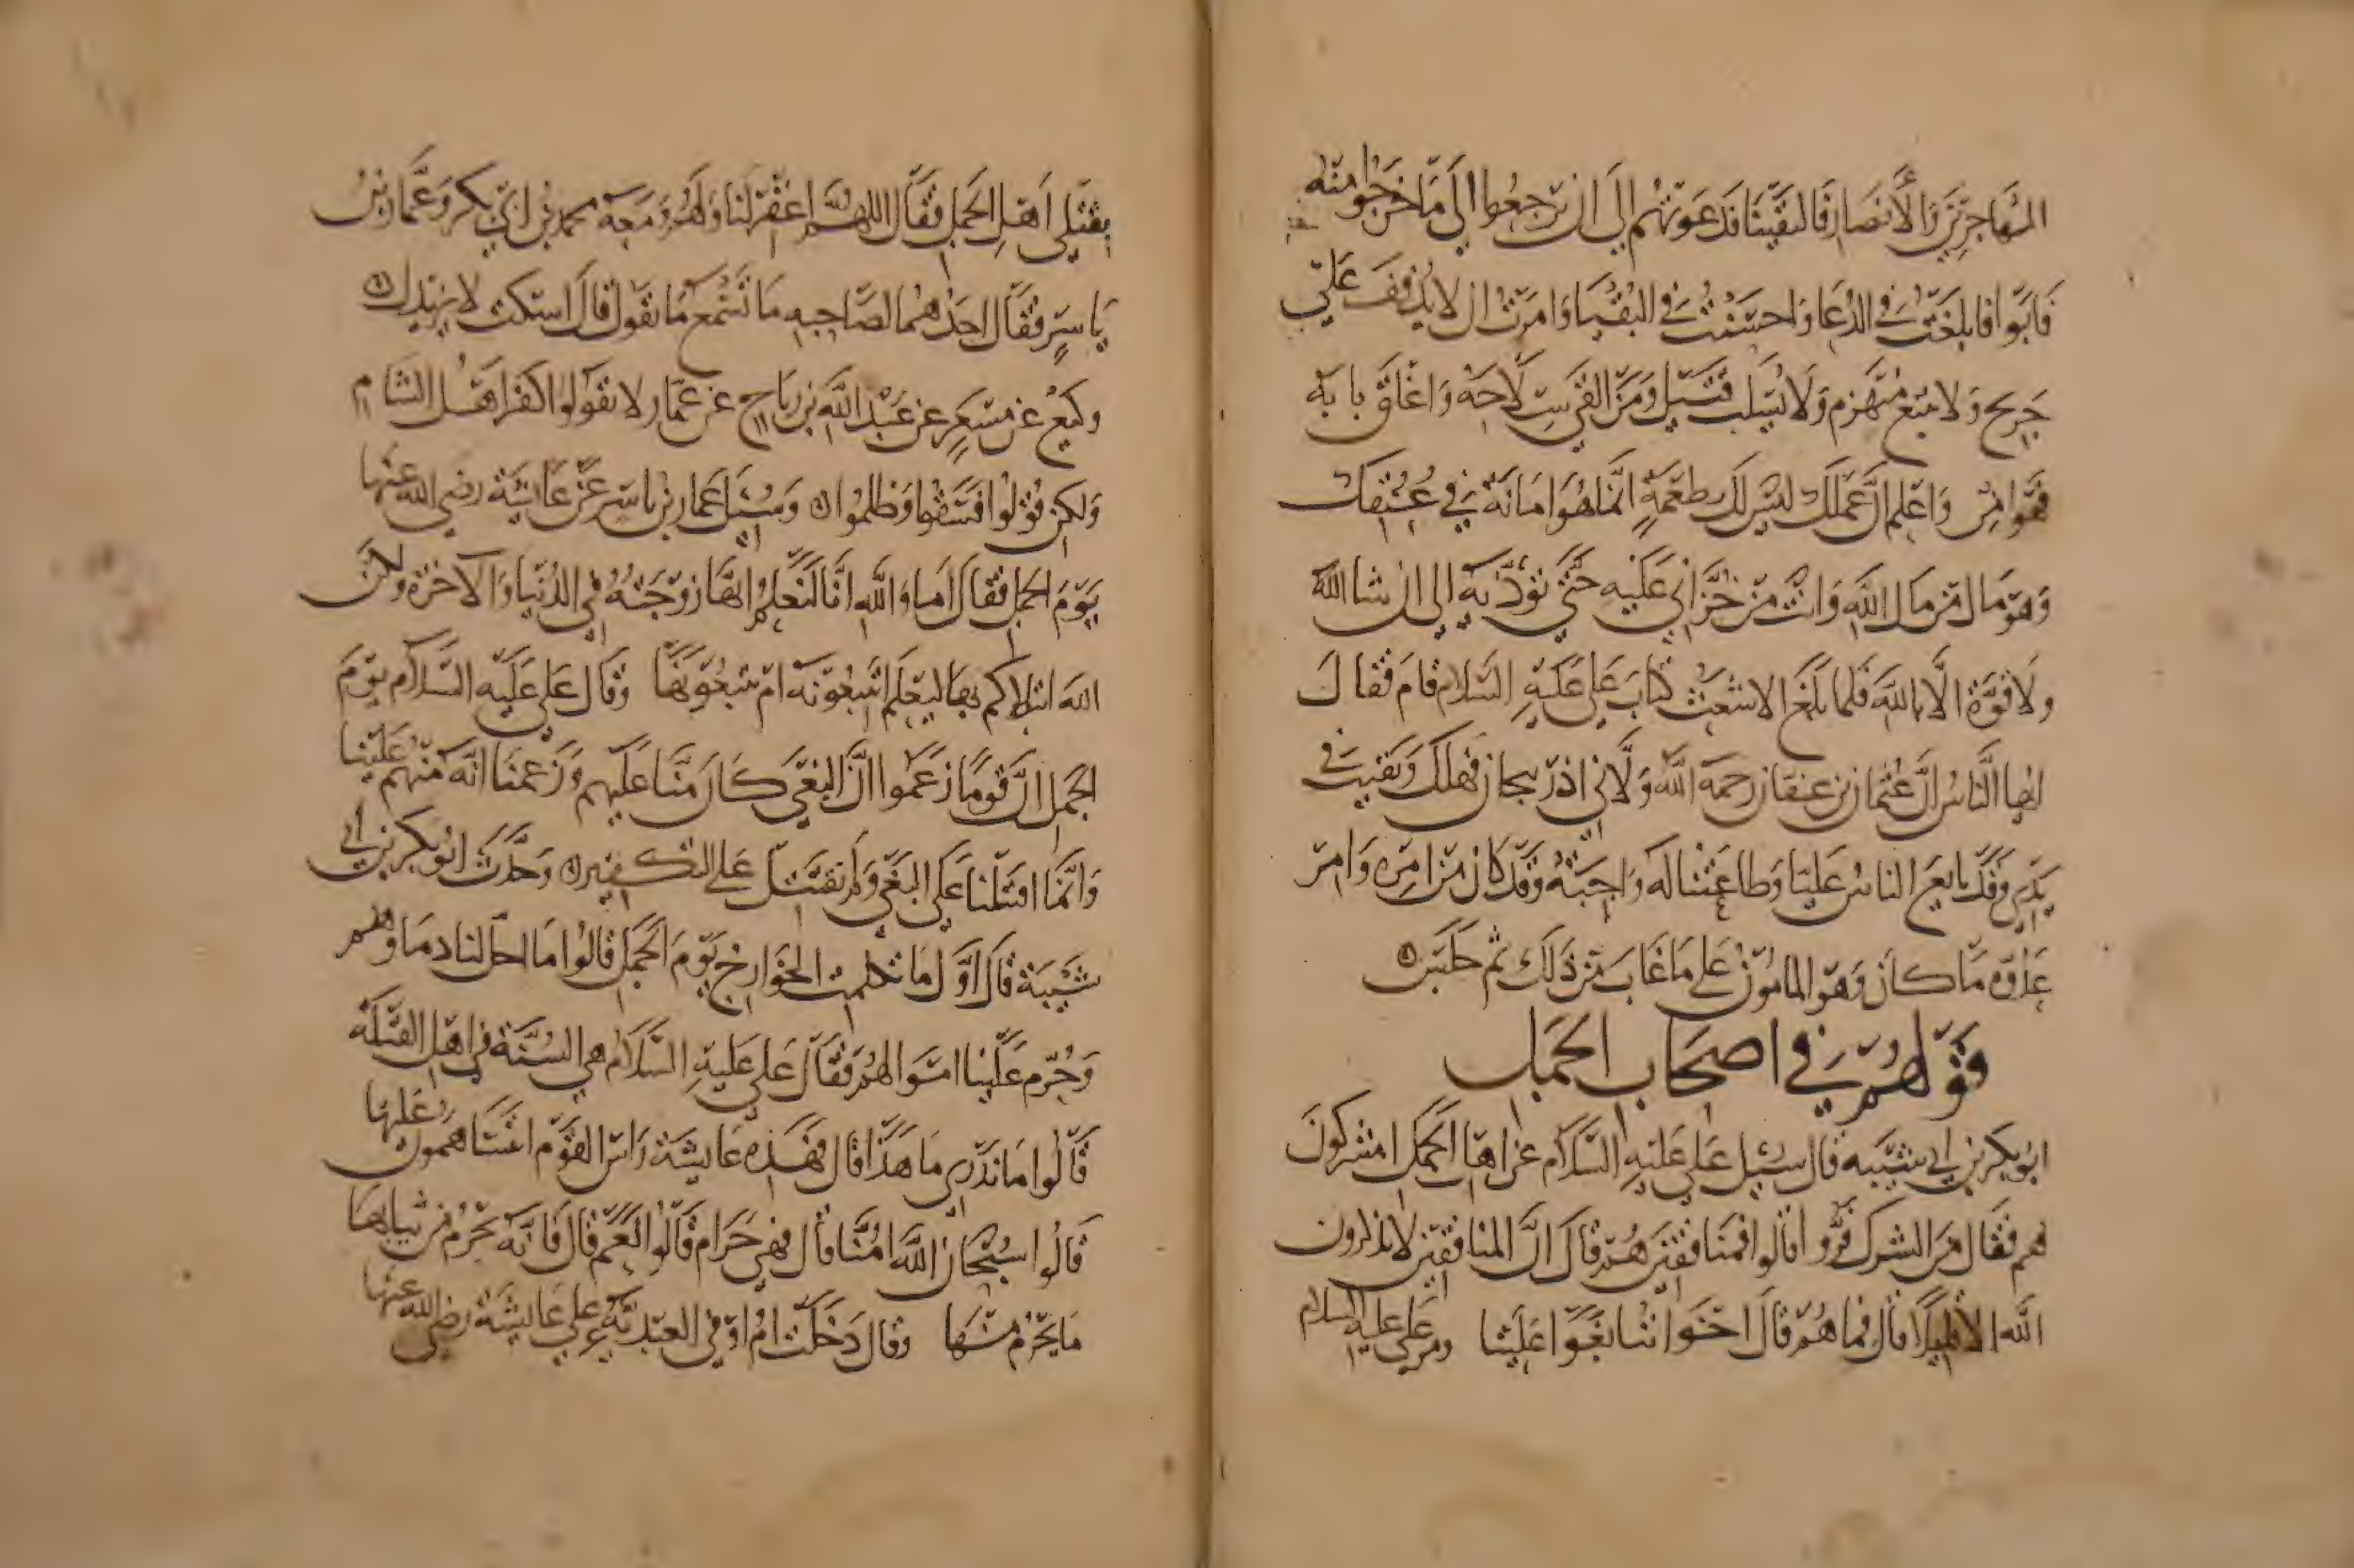 المهاجرين والأنصار فالتقينا فدعوتهم الى ان يرجعوا الى ما خرجوا منه
فابوا فابلغت في الدعا واحسنت في البقيا وامرت ان لا يذفف على
جريح ولا يتبع منهزم ولا يسلب قتيل ومن القى سلاحه واغلق بابه
فهو امن واعلم ان عملك ليس لك بطعمة انما هو امانة في عنقك
وهو مال من مال الله وانت من خزاني عليه حتى تؤديه الي ان شا الله
ولا قوة الا بالله فلما بلغ الاشعث كتاب علي عليه السلام قام فقال
ايها الناس ان عثمان بن عفان رحمة الله ولاني اذربيجان فهلك وبقيت في
يدي وقد بايع الناس عليا وطاعتنا له واجبة وقد كان من امره وامر
عدوه ما كان وهو المامون على ما غاب من ذلك ثم جلس
قولهم في اصحاب الجمل
ابو بكر بن ابي شيبه قال سئل علي عليه السلام عن اهل الجمل امشركون
هم فقال من الشرك فروا قالوا فمنافقين هم قال ان المنافقين لا يذكرون
الله الا قليلا قال فما هم قال اخواننا بغوا علينا ومر علي عليه السلام
بقتلى اهل الجمل فقال اللهم اغفر لنا ولهم ومعه محمد بن ابي بكر وعمار بن
ياسر فقال احدهما لصاحبه ما تسمع ما يقول قال اسكت لا يزيدك
وكيع عن مسعر عن عبد الله بن رباح عن عمار لا تقولوا كفر اهل الشام
ولكن قولوا فسقوا وظلموا وسئل عمار بن ياسر عن عايشة رضي الله عنها
يوم الجمل فقال اما والله انا لنعلم انها زوجته في الدنيا والاخرة ولكن
الله ابتلاكم بها ليعلم اتتبعونه ام تتبعونها وقال علي عليه السلام يوم
الجمل ان قوما زعموا ان البغي كان منا عليهم وزعمنا انه منهم علينا
وانما اقتتلنا على البغي ولم نقتتل على التكفير وحدث ابو بكر بن ابي
شيبة قال اول ما تكلمت الخوارج يوم الجمل قالوا ما احل لنا دماوهم
وحرم علينا اموالهم فقال علي عليه السلام هي السنة في اهل القبلة
قالوا ما ندري ما هذا قال فهذه عايشة راس القوم اتتساهمون عليها
قالوا سبحان الله امنا قال فهي حرام قالوا نعم قال فانه يحرم من ثيابها
ما يحرم منها وقال دخلت ام اوفى العبدية على عايشة رضي الله عنها